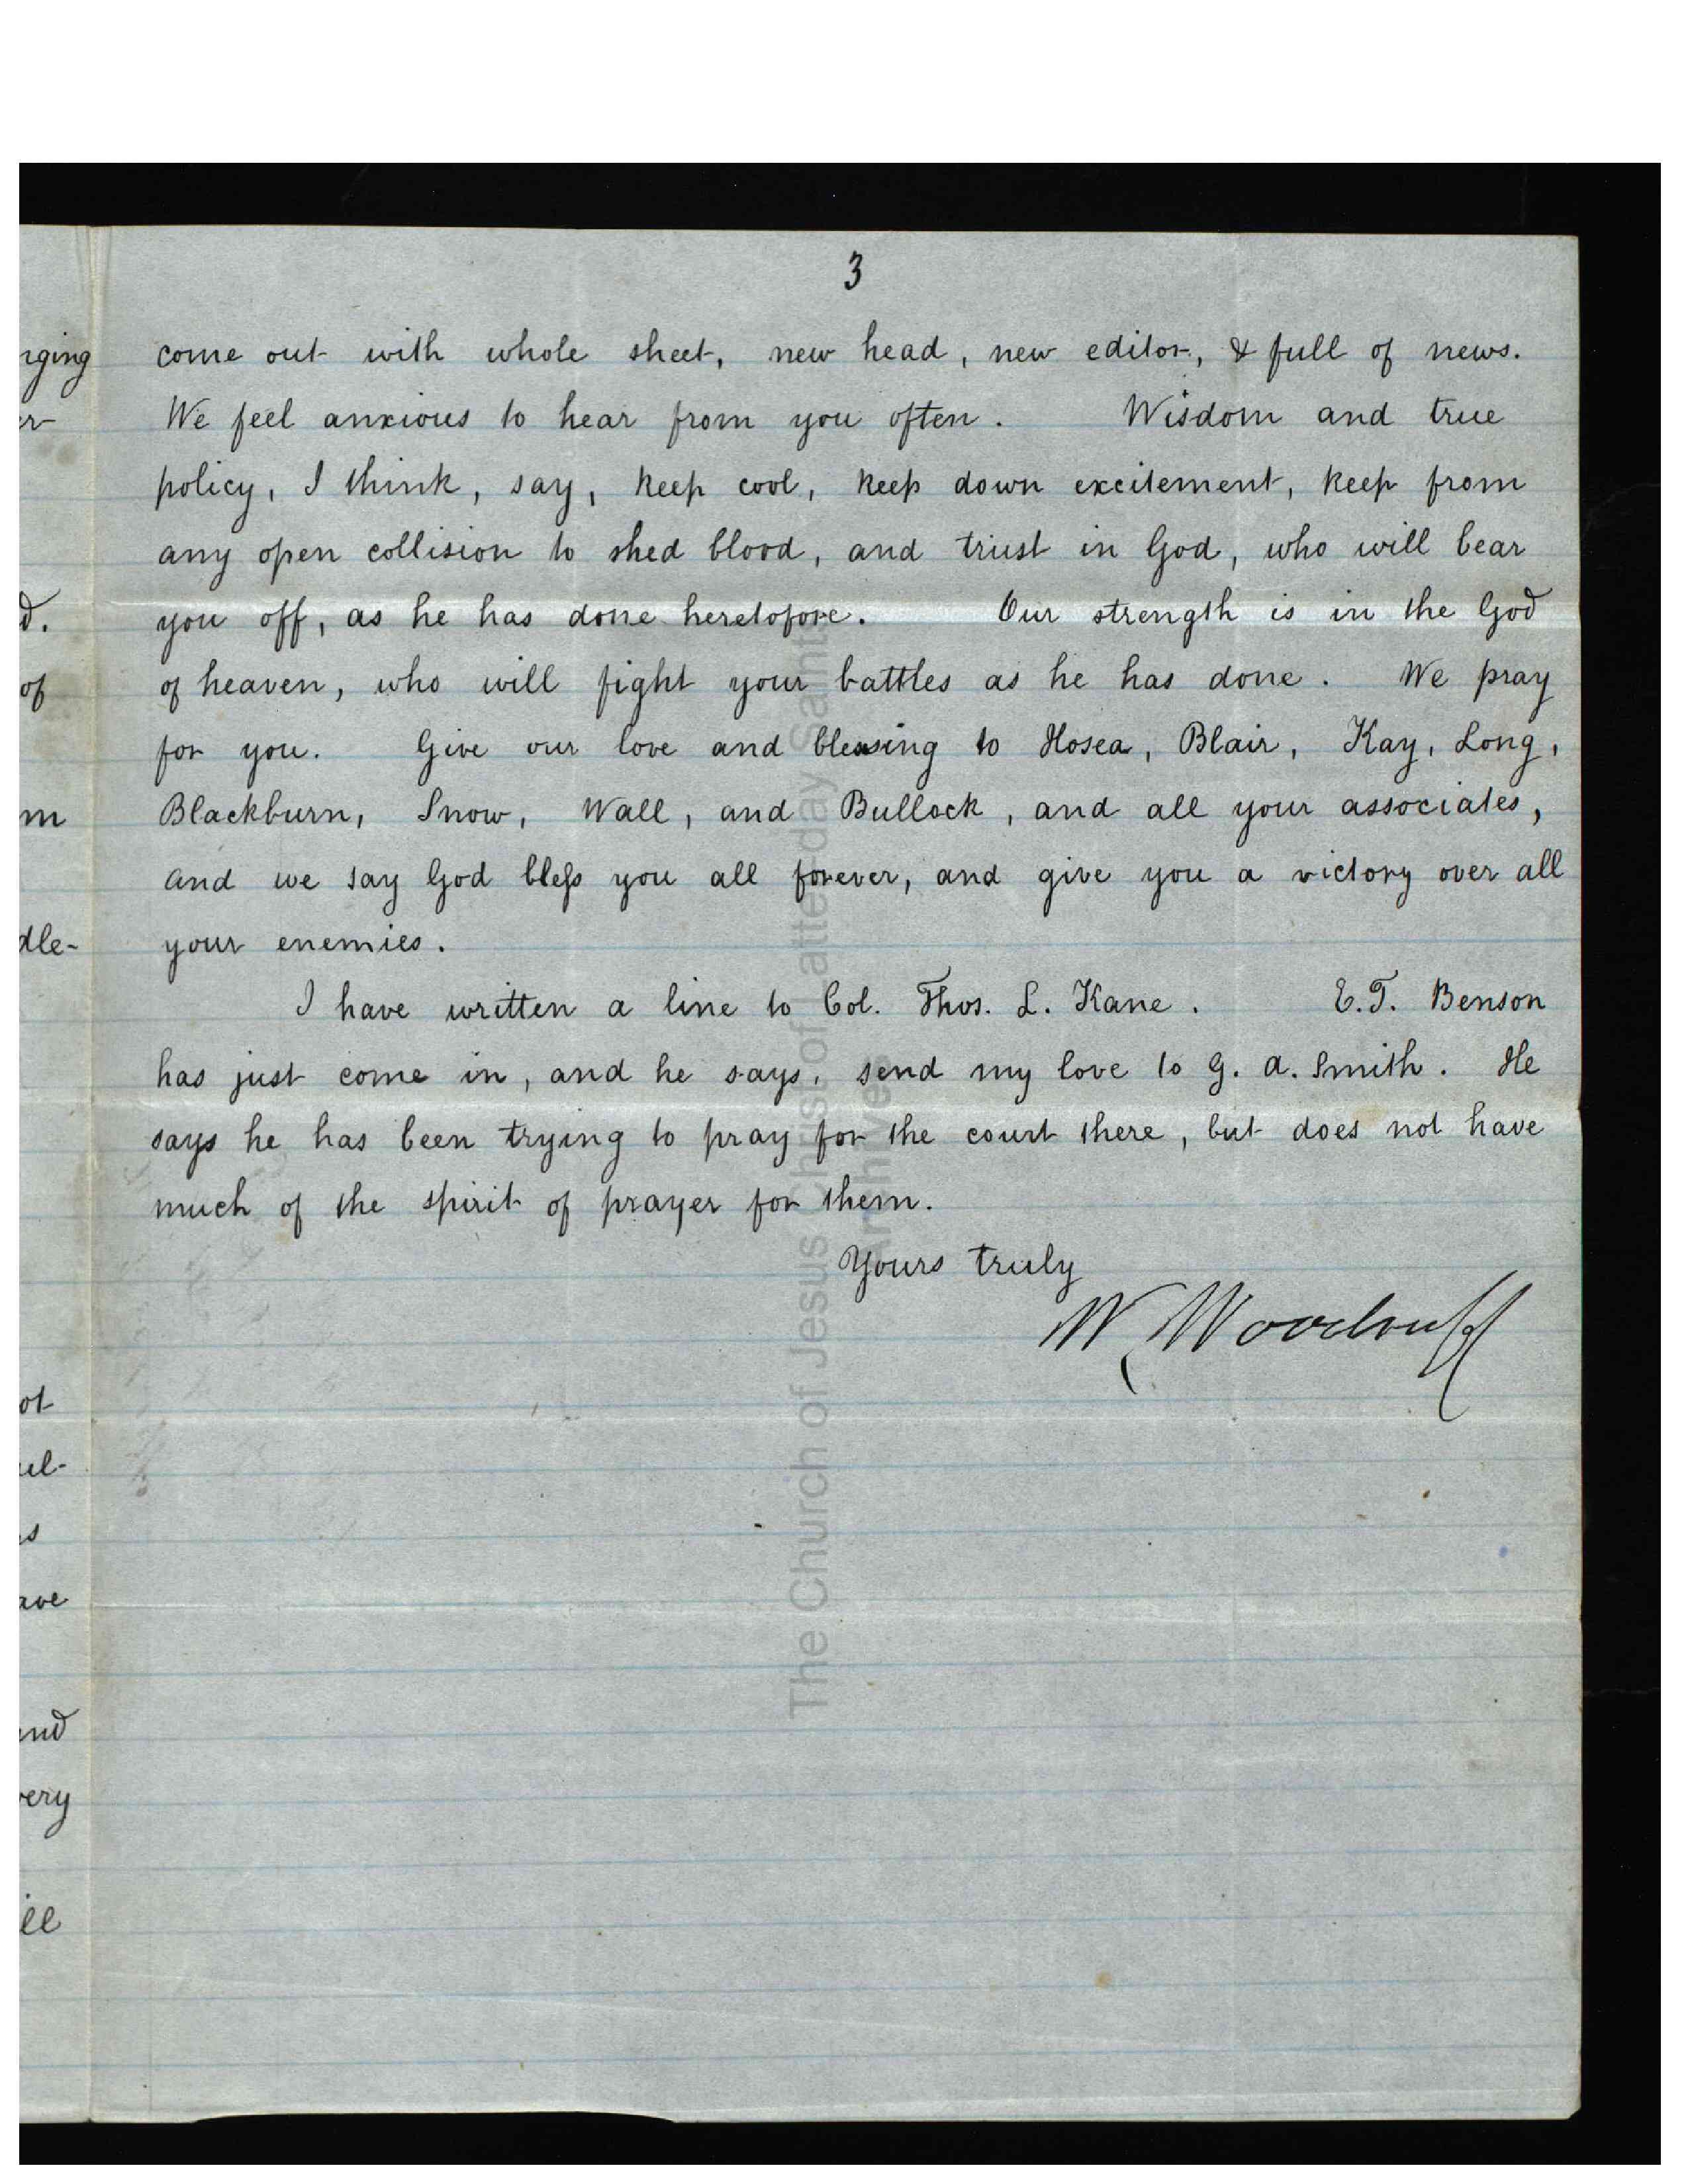 3
come out with whole sheet, new head, new editor, & full of news.
We feel anxious to hear from you often. Wisdom and true
policy, I think, say, keep cool, keep down excitement, keep from
any open collision to shed blood, and trust in God, who will bear
you off, as he has done heretofore. Our strength is in the God
of heaven, who will fight your battles as he has done. We pray
for you. Give our love and blessing to Hosea, Blair, Kay, Long,
Blackburn, Snow, Wall, and Bullock, and all your associates,
and we say God bless you all forever, and give you a victory over all
your enemies.
I have written a line to Col. Thos. L. Kane. E.T. Benson
has just come in, and he says, send my love to G. A. Smith. He
says he has been trying to pray for the court there, but does not have
much of the spirit of prayer for them.
Yours truly
W. Woodruff
rging
er
d.
of
m
dle-
ot
ul-
s
ave
and
very
ill
The Church of Jesus Christ of Latter-day Saints
Archives